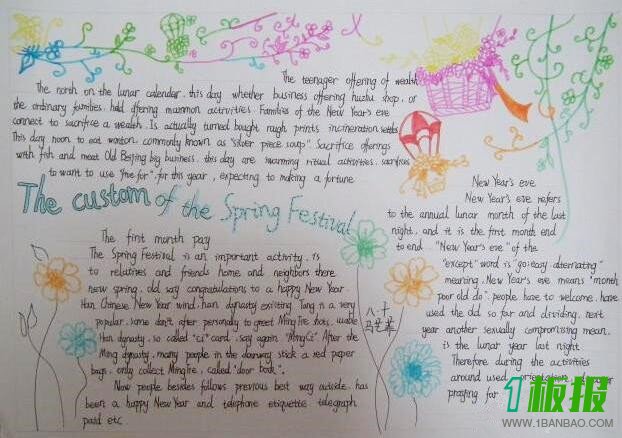 The teenager offering of wealth
The north on the lunar calendar, this day whether business offering huzhu shop, or
the ordinary families, hold offering mammon activities. Families of the New Year's eve
connect to sacrifice a wealth. Is actually turned bought rough prints incineration
This day noon to eat wonton, commonly known as "silver piece soup". Sacrifice offerings
with fish and meat Old Beijing big business, this day are swarming ritual activities, sacrifices
to want to use "five for" for this year, expecting to making a fortune
The custom of the Spring Festival
The first month pay
The Spring Festival is an important activity, is
to relatives and friends home and neighbors there
new spring, old say congratulations to a happy New Year.
Han Chinese New Year wind, han dynasty existing. Tang is a very
popular, some don't after personally to greet MingTie hots,
Han dynasty, so called "ci" card, say again "MingCi". After the
Ming dynasty, many people in the doorway stick a red paper
bags, only collect MingTie, called "door book".
Now people besides follows previous best way outside, has
been a happy New Year and telephone etiquette telegraph
paid etc
八.十
New Year's eve
New Year's eve refers
to the annual lunar month of the last
night, and it is the first month end
to end. "New Year's eve" of the
"except" word is "go: easy alternating"
meaning, New Year's eve means "month
poor old do". people have to welcome, have
used the old so far and dividing, next
year another sexually compromising mean,
is the lunar year last night
Therefore during the activities
around used
praying for
1板报
WWW.1BANBAO.COM